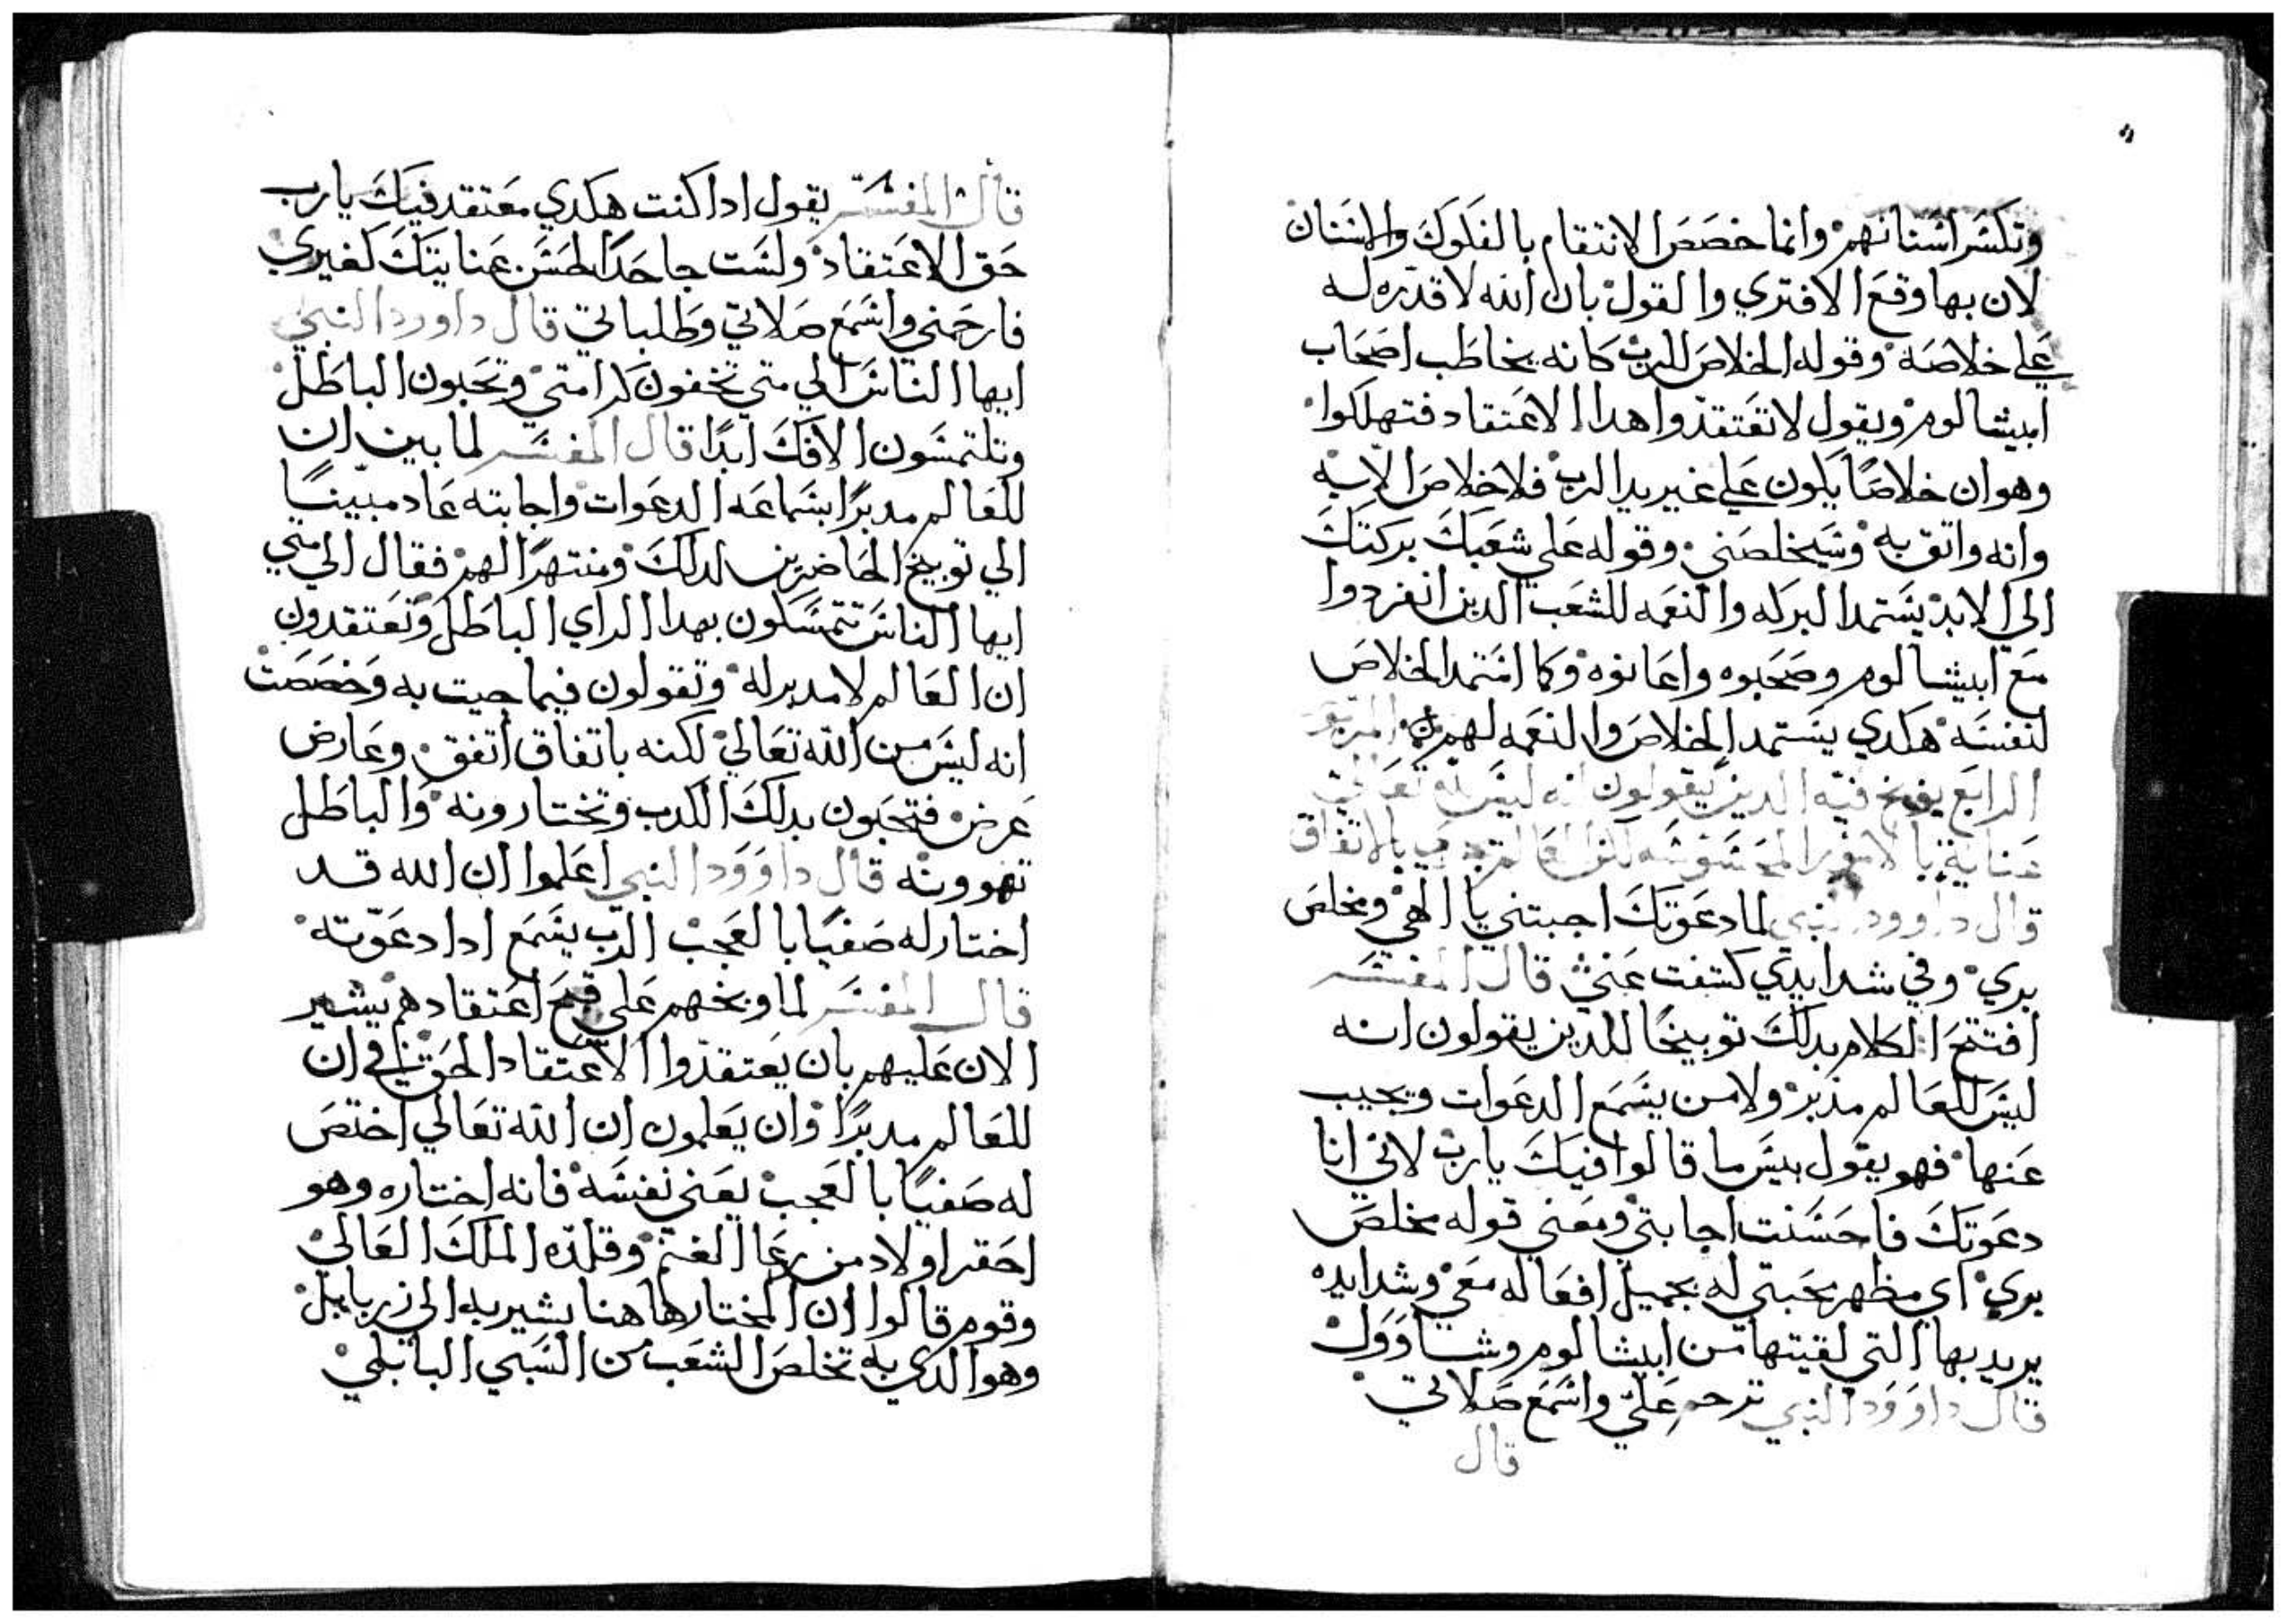 وتكسر اسنانهم وانما خصص الانتقام بالفكوك والاسنان
لان بها وقع الافتري والقول بان الله لا قدره له
علي خلاصه وقوله الخلاص للرب كانه يخاطب اصحاب
ابيشالوم ويقول لا تعتقدوا هدا الاعتقاد فتهلكوا
وهو ان خلاصًا يكون علي غير يد الرب فلا خلاص الا به
وانه واتق به وسيخلصني وقوله علي شعبك بركتك
الي الابد يستمد البركه والنعمه للشعب الدين انفردوا
مع ابيشالوم وصحبوه واعانوه وكما استمد الخلاص
لنفسه هكدي يستمد الخلاص والنعمه لهم المزمور
الرابع يوبخ فيه الدين يقولون انه ليس لله تعالي
عناية بالامور المحسوسه لكن العالم بالاتفاق
قال داوود النبي لما دعوتك اجبتني يا الهي ومخلص
بري وفي شدايدي كشفت عني قال المفسر
افتتح الكلام بدلك توبيخًا للدين يقولون انه
ليس للعالم مدبر ولا من يسمع الدعوات ويجيب
عنها فهو يقول بيس ما قالوا فيك يارب لاني انا
دعوتك فاحسنت اجابتي ومعني قوله مخلص
بري اي مظهر محبتي له بجميل افعاله معي وشدايده
يريد بها التي لقيتها من ابيشالوم وشاوول
قال داوود النبي ترحم علي واسمع صلاتي
قال
قال المفسر يقول ادا كنت هكدي معتقد فيك يارب
حق الاعتقاد ولست جاحدًا لحسن عنايتك كغيري
فارحمني واسمع صلاتي وطلباتي قال داورد النبي
ايها الناس الي متي تخفون كرامتي وتحبون الباطل
وتلتمسون الافك ابدًا قال المفسر لما بين ان
للعالم مدبرًا بسماعه الدعوات واجابته عاد مبينًا
الي توبيخ الحاضرين لدلك ومنتهرًا لهم فقال الي متي
ايها الناس تتمسكون بهدا الراي الباطل وتعتقدون
ان العالم لا مدبر له وتقولون فيما حبيت به وخصصت
انه ليس من الله تعالي لكنه باتفاق اتفق وعارض
عرض فتحبون بدلك الكدب وتختارونه والباطل
تهوونه قال داوود النبي اعلموا ان الله قد
اختار له صفيًا بالعجب الرب يسمع ادا دعوته
قال المفسر لما وبخهم علي قبح اعتقادهم يشير
الان عليهم بان يعتقدوا الاعتقاد الحق في ان
للعالم مدبرًا وان يعلمون ان الله تعالي اختص
له صفيًا بالعجب يعني نفسه فانه اختاره وهو
احقر اولاد من رعا الغنم وقلده الملك العالي
وقوم قالوا ان المختار هاهنا يشير به الي زربابل
وهو الدي به تخلص الشعب من السبي البابلي